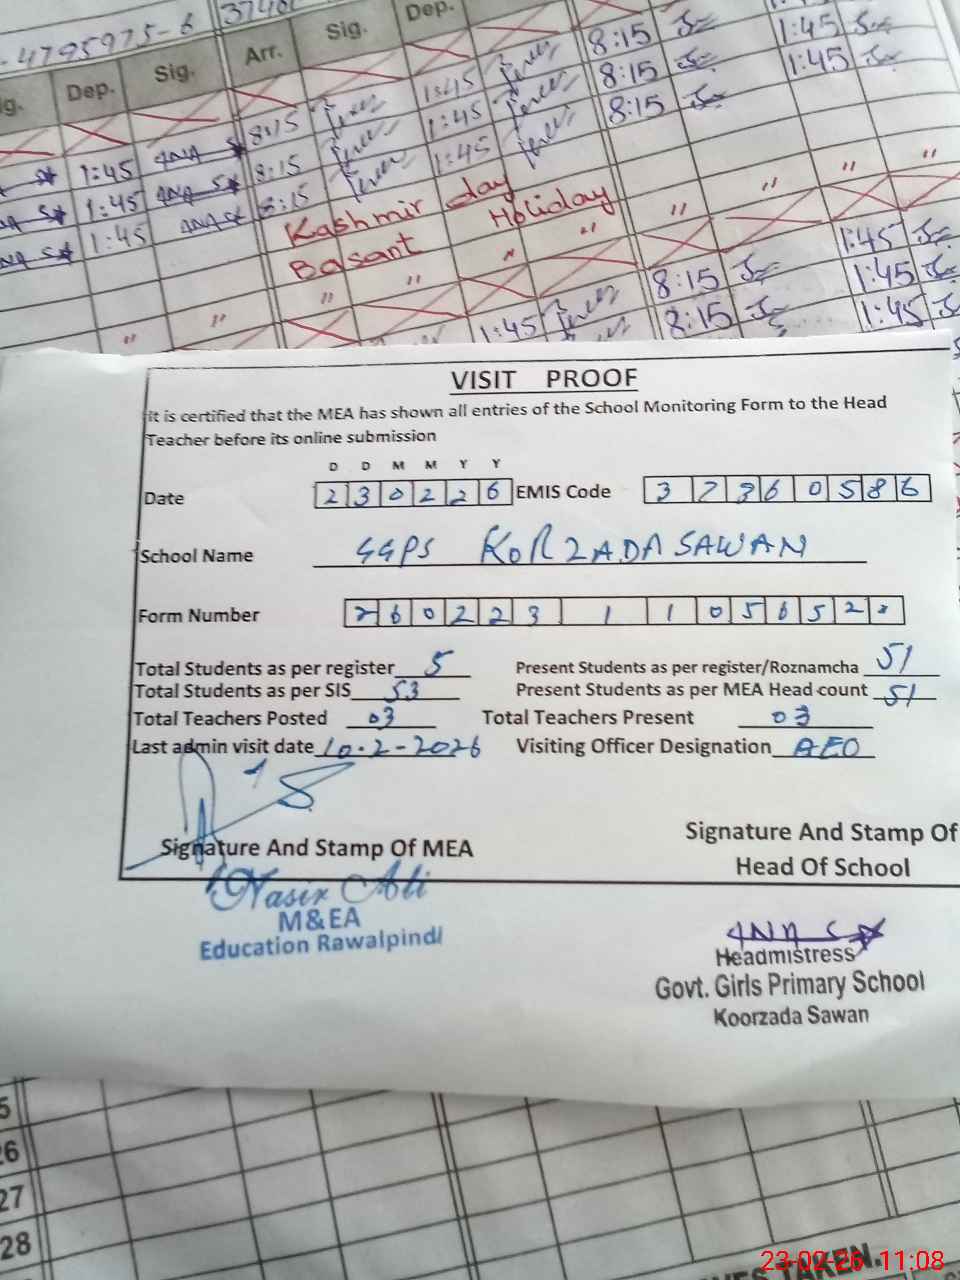 -4795975-6 3740
ig. Dep. Sig. Arr. Sig. Dep.
8:15 1:45 8:15 1:45
1:45 ANA 8:15 1:45 8:15 1:45
1:45 ANA 8:15 1:45 8:15
1:45 ANA
Kashmir day " " "
Basant Holiday " "
" " " " "
8:15 1:45
1:45 8:15 1:45
1:45
VISIT PROOF
it is certified that the MEA has shown all entries of the School Monitoring Form to the Head
Teacher before its online submission
D D M M Y Y
Date 2 3 0 2 2 6 EMIS Code 3 7 3 6 0 5 8 6
School Name GGPS KORZADA SAWAN
Form Number 2 6 0 2 2 3 1 1 0 5 6 5 2
Total Students as per register 5 Present Students as per register/Roznamcha 51
Total Students as per SIS 53 Present Students as per MEA Head count 51
Total Teachers Posted 03 Total Teachers Present 03
Last admin visit date 10-2-2026 Visiting Officer Designation AEO
Signature And Stamp Of MEA
Signature And Stamp Of
Head Of School
Nasir Ali
M&EA
Education Rawalpindi
ANA
Headmistress
Govt. Girls Primary School
Koorzada Sawan
5
26
27
28
TAKEN.
23-02-26 11:08